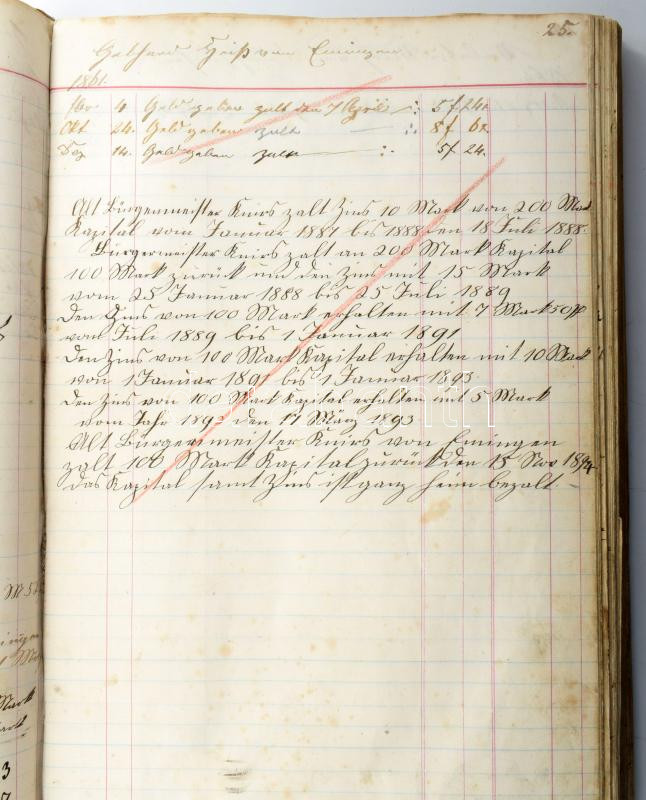 25.
Gebhard Heiß von Emingen
1861.
4 Geld geben zalt den 7 April 5 f 24x
Okt 24. Geld geben zalt 8 f 6x
Dez 14. Geld geben zalt 5 f 24.
Alt Bürgermeister Knirs zalt Zins 10 Mark von 200 Mark
Kapital vom Januar 1887 bis 1888 den 18 Juli 1888.
Bürgermeister Knirs zalt an 200 Mark Kapital
100 Mark zurück und den Zins mit 15 Mark
vom 25 Januar 1888 bis 25 Juli 1889
den Zins von 100 Mark erhalten mit 7 Mark 50 Pf
vom Juli 1889 bis 1 Januar 1891
den Zins von 100 Mark Kapital erhalten mit 10 Mark
von 1 Januar 1891 bis 1 Januar 1893
den Zins von 100 Mark Kapital erhalten mit 5 Mark
vom Jahr 1892 den 17 März 1893
Alt Bürgermeister Knirs von Emingen
zalt 100 Mark Kapital zurück den 15 Nov 1894
das Kapital samt Zins ist ganz heim bezalt